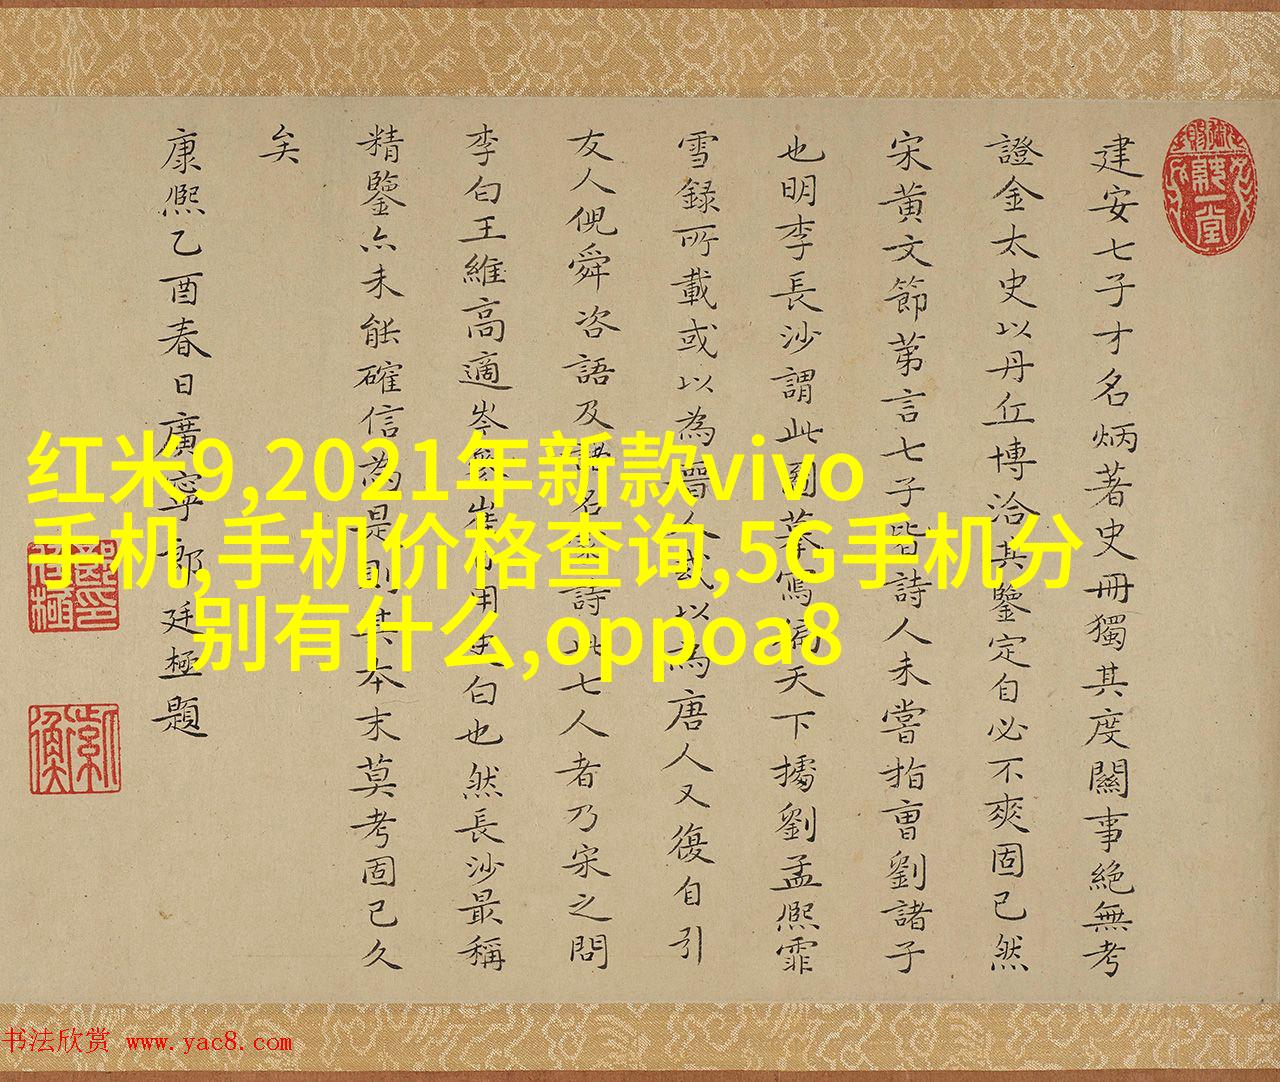 建安七子才名炳著史冊獨其度關事絕無考
證金太史以丹丘博洽其鑒定自必不爽固已然
宋黃文節苐言七子皆詩人未嘗指曹劉諸子
也明李長沙謂此圖摹寫徧天下據劉孟熙霏
雪録所載或以為晉人或以為唐人又復自引
友人倪舜咨語及
名
詩此七人者乃宋之問
李白王維高適岑
崔
用
白也然長沙最稱
精鑒亦未能確信為是則其本末莫考固已久
矣
康熙乙酉春日廣寧郎廷極題
红米9,2021年新款vivo
手机,手机价格查询,5G手机分
别有什么,oppoa8
书法欣赏 www.yac8.com